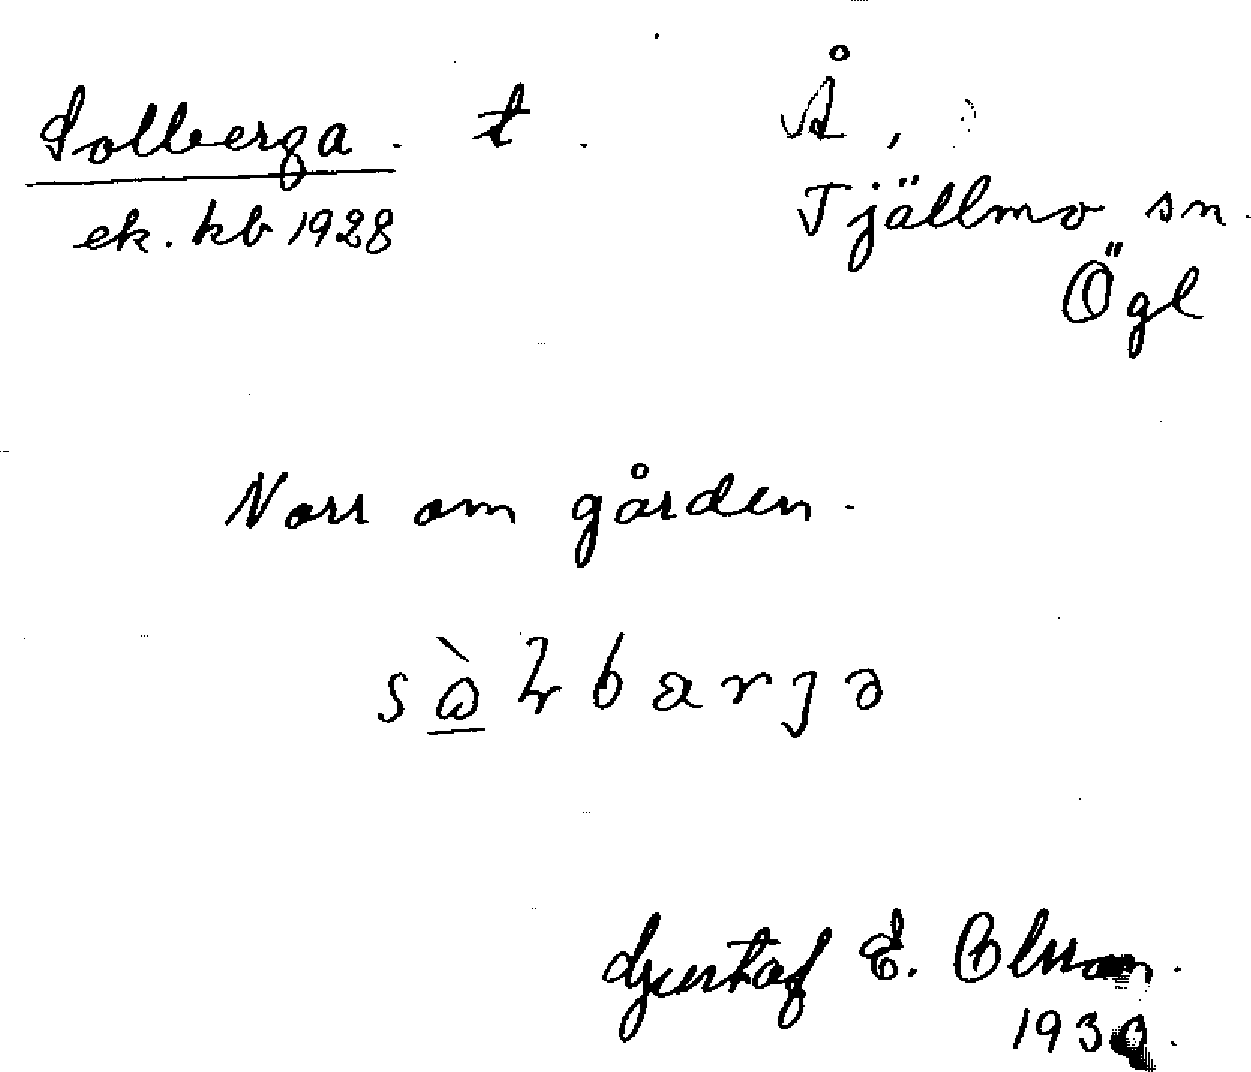 Solberga. t. Å,
ek. kb 1928 Tjällmo sn.
Ögl
Norr om gården.
Gustaf E. Olsson.